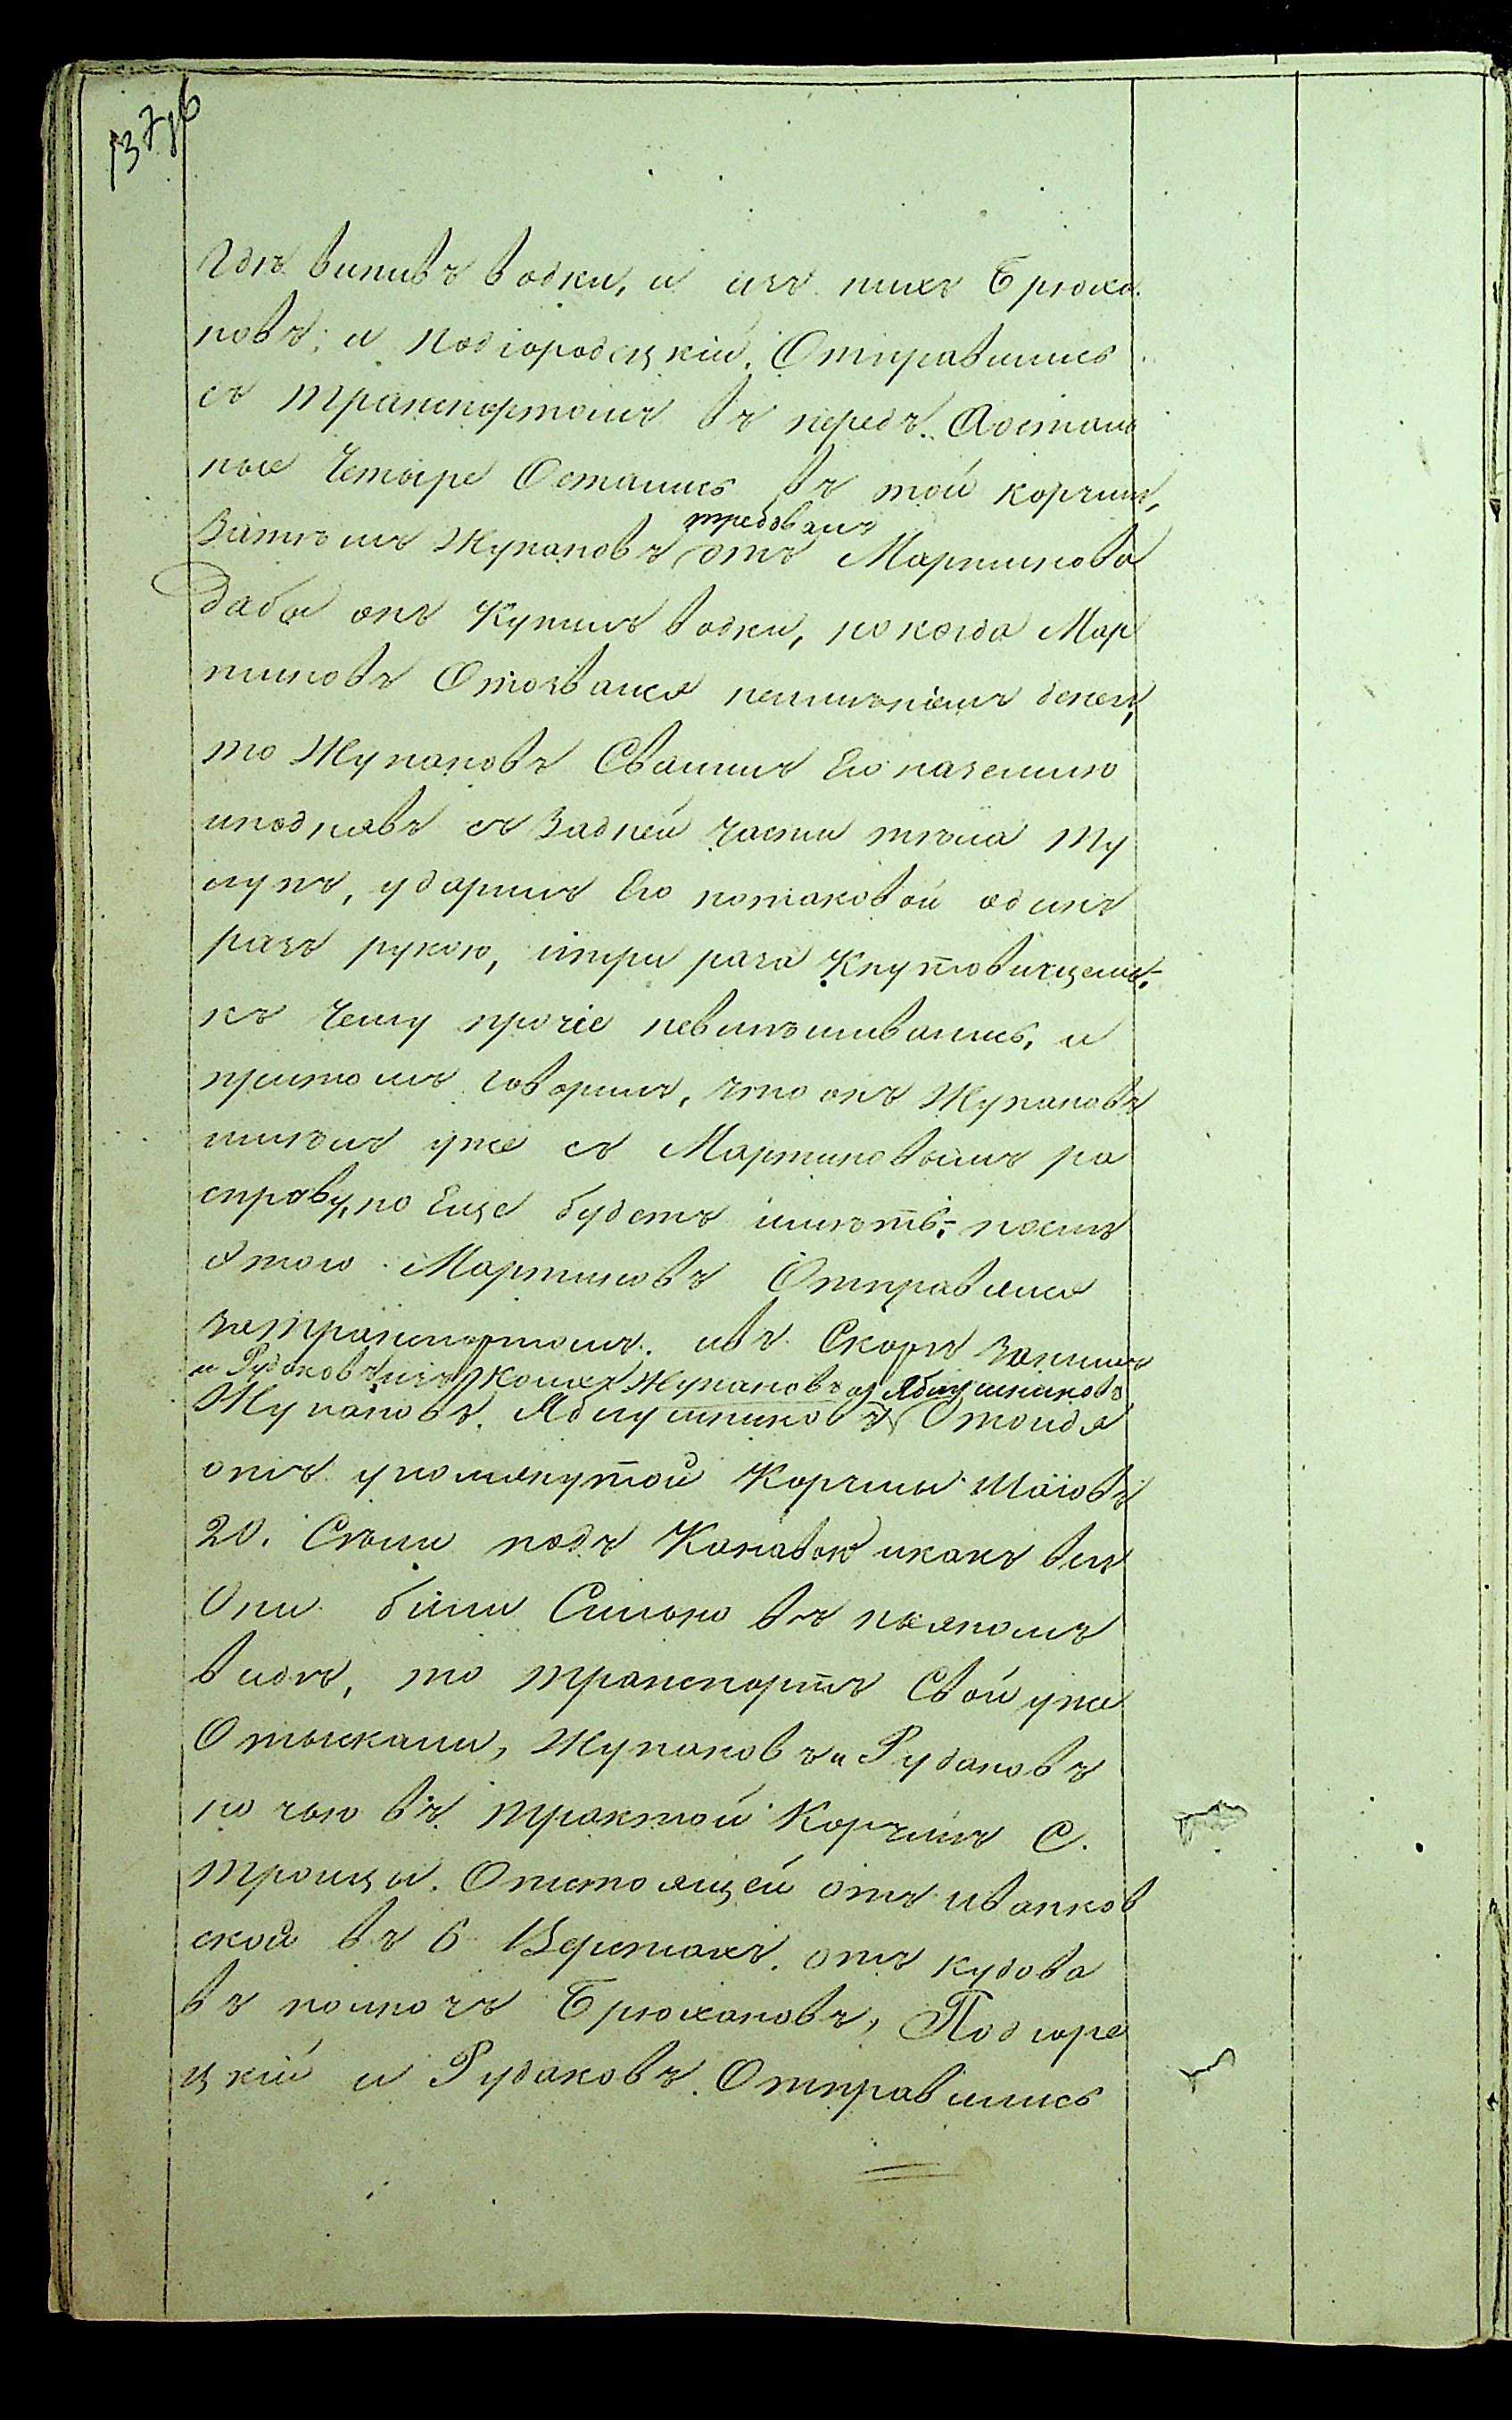 137 об
гдѣ випивъ водки, и изъ нихъ Брюха
новъ, и Подгородецкій. Отправились
съ транспортомъ въ передъ. Аосталь
ные Четыре Остались въ той корчмѣ,
Затѣмъ Жупановъ требовалъ отъ Мартинова
дабы онъ Купилъ водки, но когда Мар
тиновъ Отозвался неимѣніемъ денегъ,
то Жупановъ Свалилъ Его наземлю
иподнявъ съ Задней части тѣла Ту
лупъ, ударилъ Его потаковой одинъ
разъ рукою, итри раза Кнутовищемъ.
къ Чему прочіе невмѣшивались, и
притомъ говорилъ, что онъ Жупановъ
имѣлъ уже съ Мартиновымъ ра
справу, но Еще будетъ имѣть; послѣ
этого Мартиновъ Отправился
затранспортомъ. ивъ Скорѣ Занимъ
и Рудаковъ изъ коихъ Жупановъ и Яблушниковъ
Жупановъ. Яблушниковъ Отойдя
отъ упомянутой Корчмы Шаговъ
20. Сѣли подъ Канавою икакъ всѣ
Они били Сильно въ пьяномъ
видѣ, то транспортъ Свой уже
Отыскали, Жупановъ и Рудаковъ
ночью въ трактой Корчмѣ С.
Троицы. Отстоящей отъ иванков
ской въ 6 Верстахъ. отъ кудова
въ полночь Брюхановъ, Подгоре
цкій и Рудаковъ. Отправились